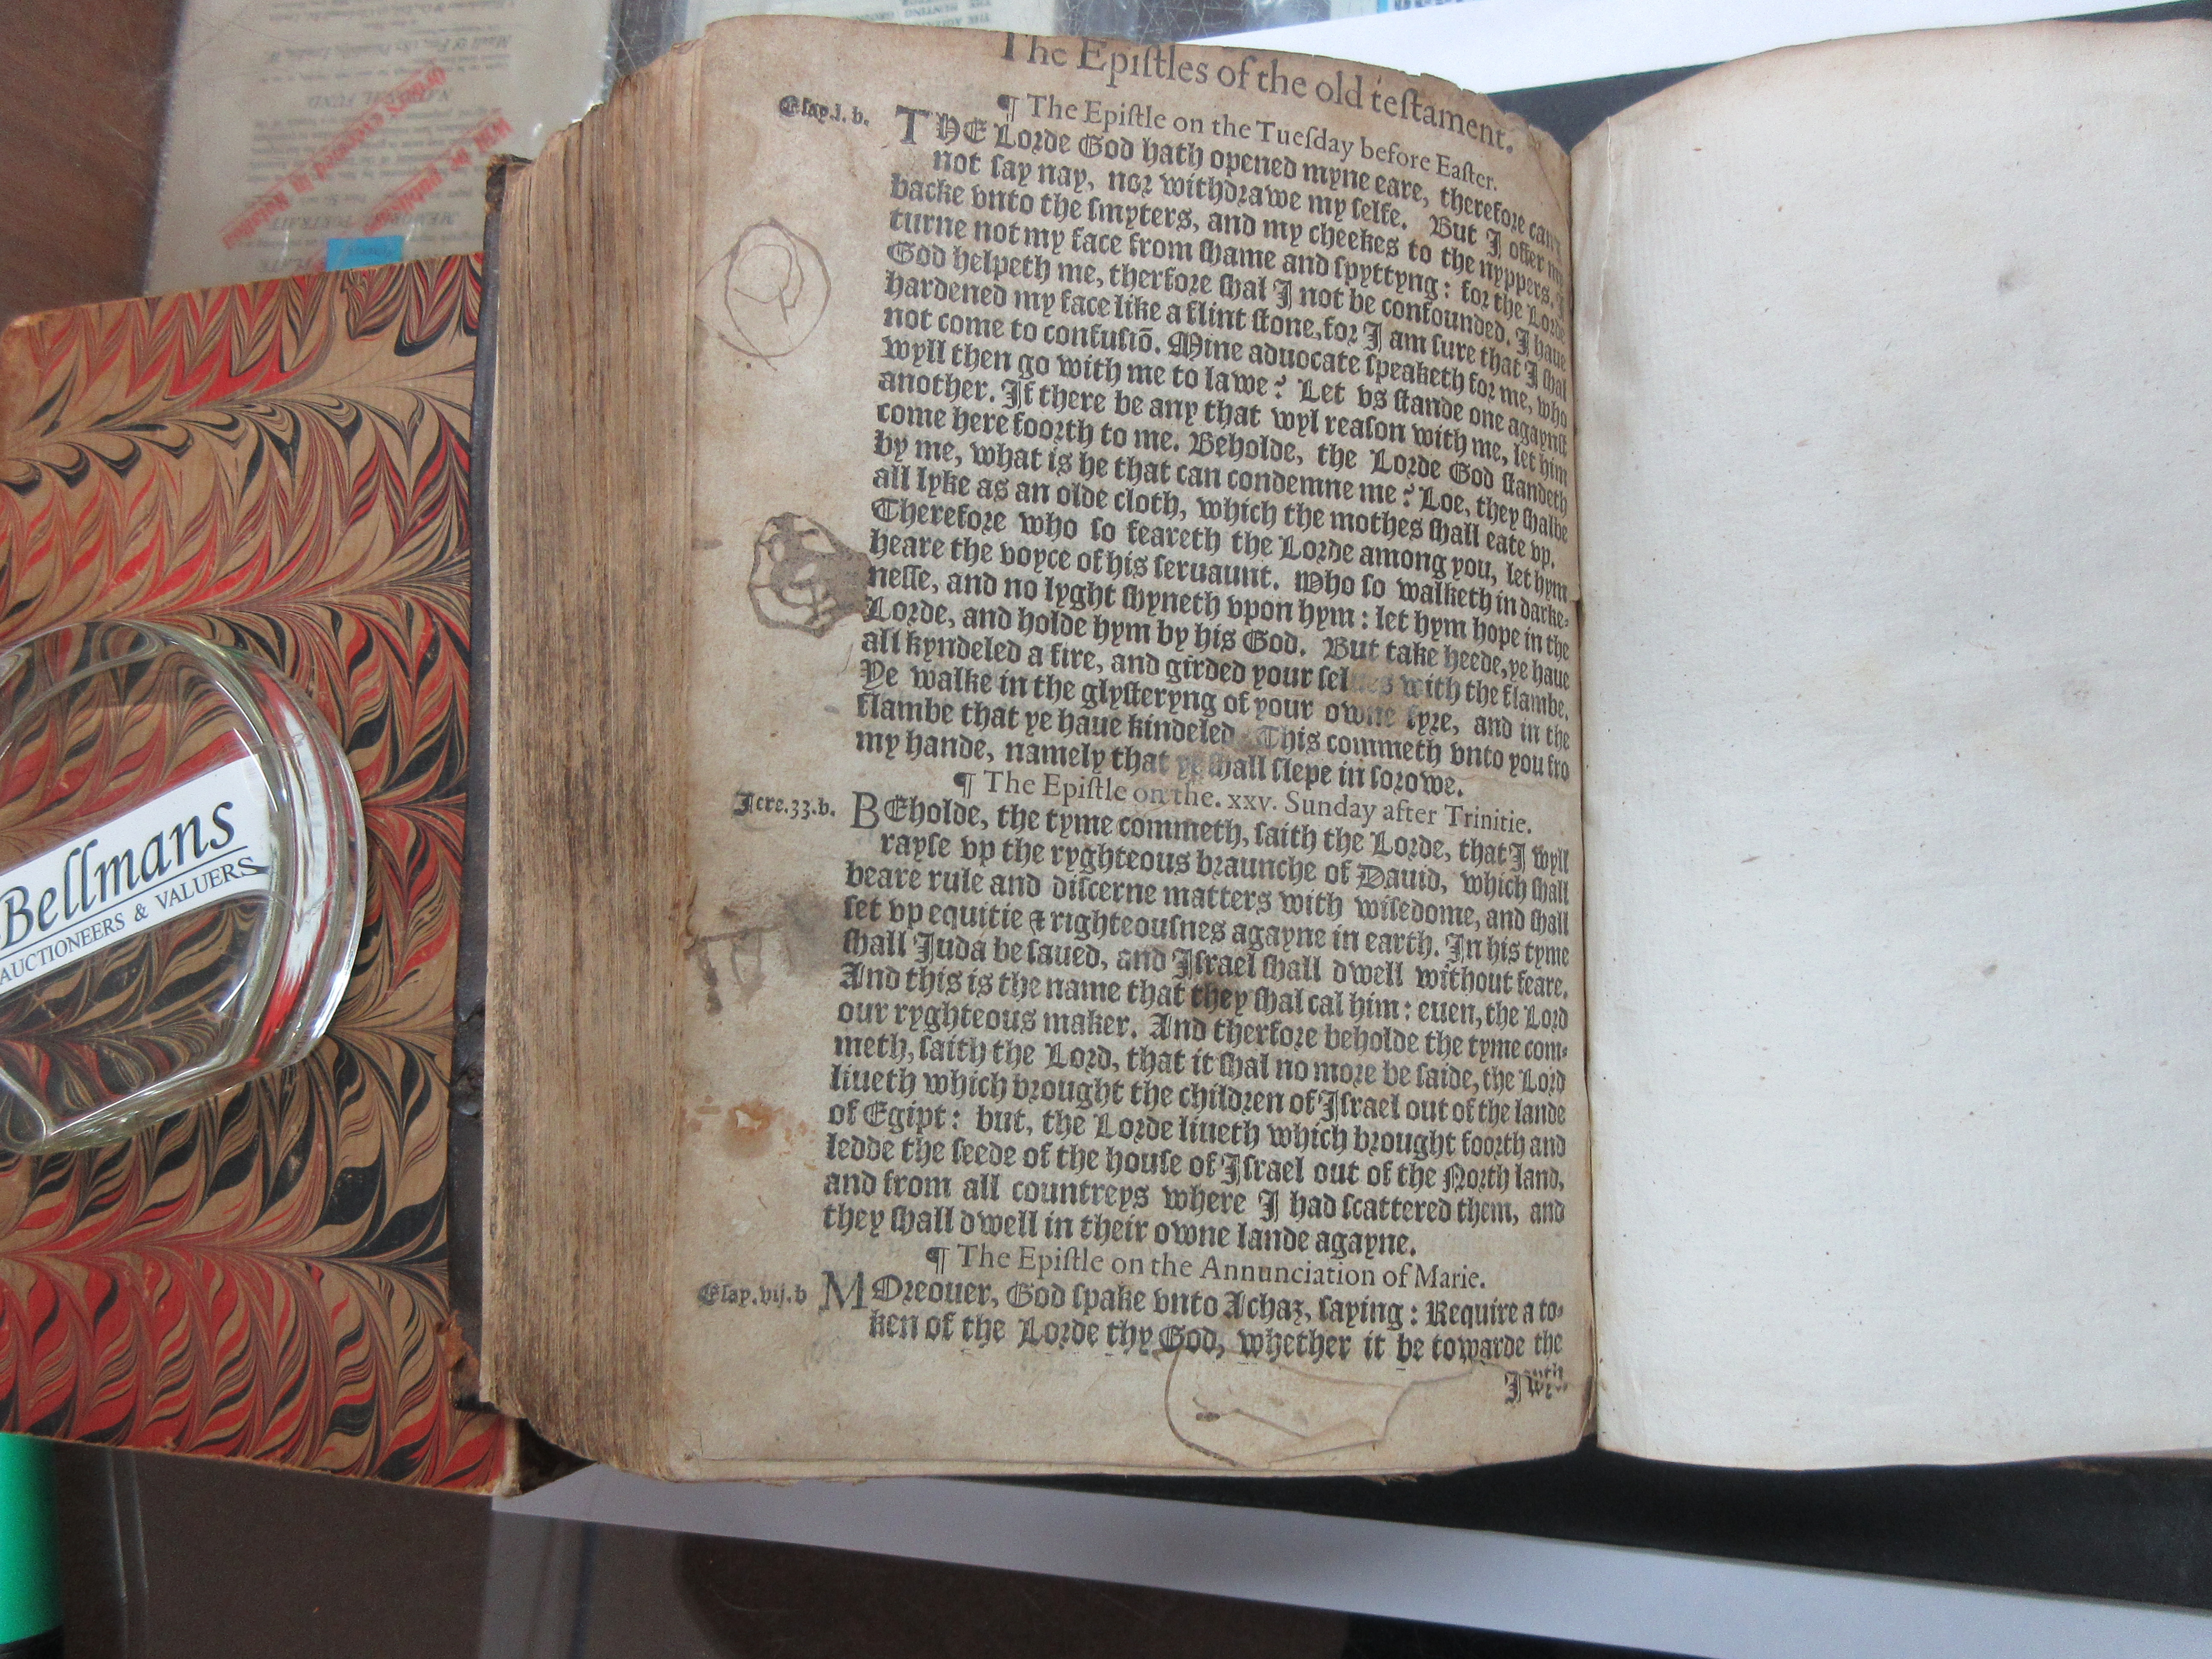 The Epistles of the old testament.
¶ The Epistle on the Tuesday before Easter.
Esay.l.b.
THE Lorde God hath opened myne eare, therefore can I
not say nay, nor withdrawe my selfe. But I offer my
backe vnto the smyters, and my cheekes to the nyppers, I
turne not my face from shame and spyttyng: for the Lorde
God helpeth me, therfore shal I not be confounded. I haue
hardened my face like a flint stone, for I am sure that I shal
not come to confusiō. Mine aduocate speaketh for me, who
wyll then go with me to lawe? Let vs stande one agaynst
another. If there be any that wyl reason with me, let him
come here foorth to me. Beholde, the Lorde God standeth
by me, what is he that can condemne me? Loe, they shalbe
all lyke as an olde cloth, which the mothes shall eate vp.
Therefore who so feareth the Lorde among you, let hym
heare the voyce of his seruaunt. Who so walketh in darke-
nesse, and no lyght shyneth vpon hym: let hym hope in the
Lorde, and holde hym by his God. But take heede, ye haue
all kyndeled a fire, and girded your selues with the flambe.
Ye walke in the glysteryng of your owne fyre, and in the
flambe that ye haue kindeled. This commeth vnto you fro
my hande, namely that ye shall slepe in sorowe.
¶ The Epistle on the. xxv. Sunday after Trinitie.
Iere.33.b.
BEholde, the tyme commeth, saith the Lorde, that I wyll
rayse vp the ryghteous braunche of Dauid, which shall
beare rule and discerne matters with wisedome, and shall
set vp equitie & righteousnes agayne in earth. In his tyme
shall Juda be saued, and Israel shall dwell without feare.
And this is the name that they shal cal him: euen, the Lord
our ryghteous maker. And therfore beholde the tyme com-
meth, saith the Lord, that it shal no more be saide, the Lord
liueth which brought the children of Israel out of the lande
of Egipt: but, the Lorde liueth which brought foorth and
ledde the seede of the house of Israel out of the North land,
and from all countreys where I had scattered them, and
they shall dwell in their owne lande agayne.
¶ The Epistle on the Annunciation of Marie.
Esay.vij.b
MOreouer, God spake vnto Achaz, saying: Require a to-
ken of the Lorde thy God, whether it be towarde the
Bellmans
AUCTIONEERS & VALUERS